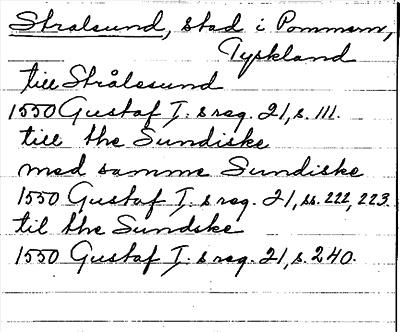 Stralsund, stad i Pommern,
Tyskland
till Strålssund
1550 Gustaf I:s reg. 21, s. 111.
till the Sundiske
med samme Sundiske
1550 Gustaf I:s reg. 21, ss. 222, 223.
til the Sundske
1550 Gustaf I:s reg. 21, s. 240.